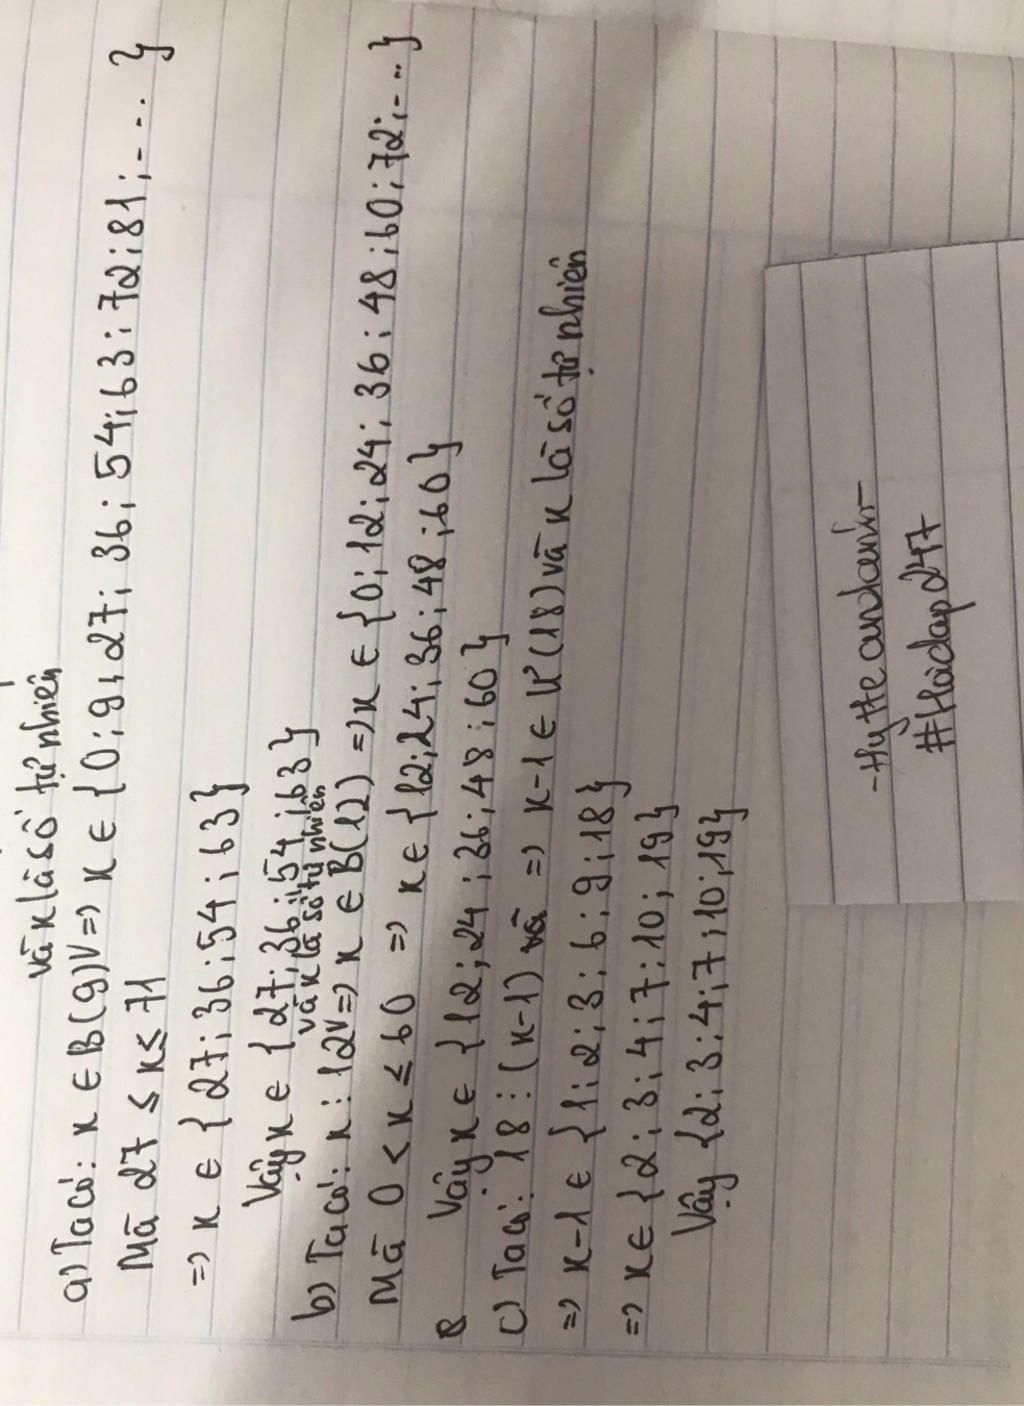 và x là số tự nhiên
a) Ta có: x ∈ B(9)V=> x ∈ {0;9;27;36;54;63;72;81;....}
Mà 27 ≤ x ≤ 71
=> x ∈ {27;36;54;63}
Vậy x ∈ {27;36;54;63}
và x là số tự nhiên
b) Ta có: x : 12V=> x ∈ B(12) => x ∈ {0;12;24;36;48;60;72;...}
Mà 0 < x ≤ 60 => x ∈ {12;24;36;48;60}
Vậy x ∈ {12;24;36;48;60}
c) Ta có: 18 : (x-1) và => x-1 ∈ Ư(18) và x là số tự nhiên
=> x-1 ∈ {1;2;3;6;9;18}
=> x ∈ {2;3;4;7;10;19}
Vậy {2;3;4;7;10;19}
#Hoidap247